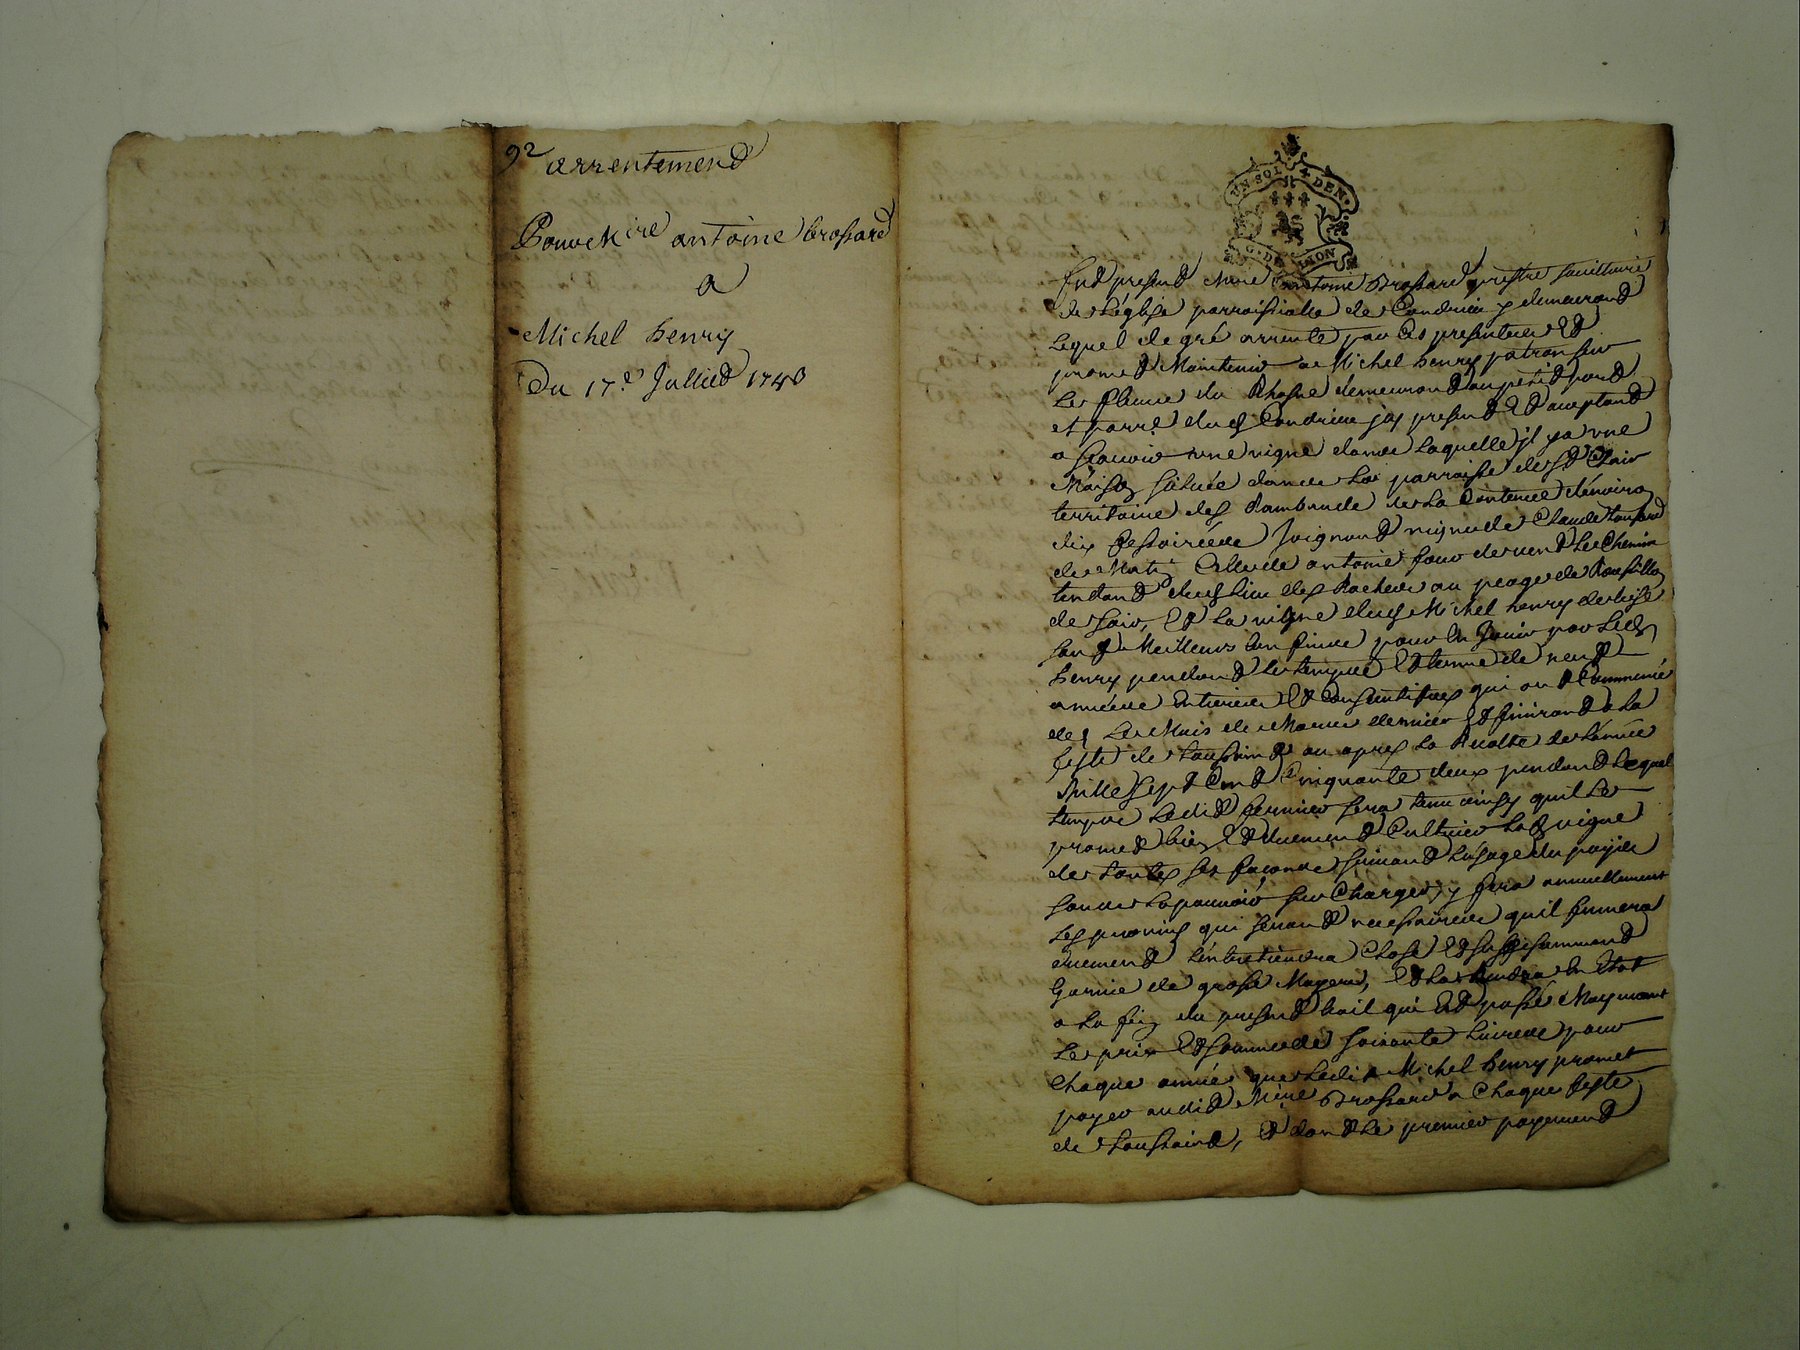 92 arrentement
Pour Mire antoine brossard
a
Michel henry
Du 17e Juillet 1743
UN SOL 4 DEN.
G. DE LION
fut present Mire antoine Brossard prestre
de Leglise parroissialle de Condrieu y demeurant
Lequel de gré arrente par Ces presentes Et
promet Maintenir a Michel henry patron sur
Le fleuve du Rhosne demeurant au petit port
et parre. dud Condrieu jcy present Et aceptant
a sçavoir une vigne dans Laquelle jl ya une
Maison située dans La parroisse de st Clair
territoire des de La Contenue denviron
dix fessoirées Joignant vigne de Claude
de Matin Celle de antoine four de vent Le Chemin
tendant dud Lieu des Roches au peage de Roussillon
de soir, Et La vigne dud Michel henry de bize
sauf Meilleurs Confins pour En Jouir par Led
henry pendant Le temps Et terme de neuf
années Entieres Et Consecutives qui ont Commencé
des Le Mois de Mars dernier Et finiront a La
feste de toussaint ou apres La Recolte de Lannée
Mille sept Cent Cinquante deux pendant Lequel
temps Ledit fermier sera tenu ainsy quil Le
promet bien Et duement Cultiver Lad vigne
de toutes ses façons suivant Lusage du payis
sans La pouvoir sur Charger, y fera annuellement
Les provins qui seront necessaires quil fumera
duement Lentretiendra Close Et suffisamment
Garnie de gros Et La Rendra En Etat
a La fin du present bail qui Est passé Moyenant
Le prix Et somme de soixante Livres pour
Chaque année que Ledit Michel henry promet
payer audit Mire Brossard a Chaque feste
de toussaint, Et dont Le premier payement